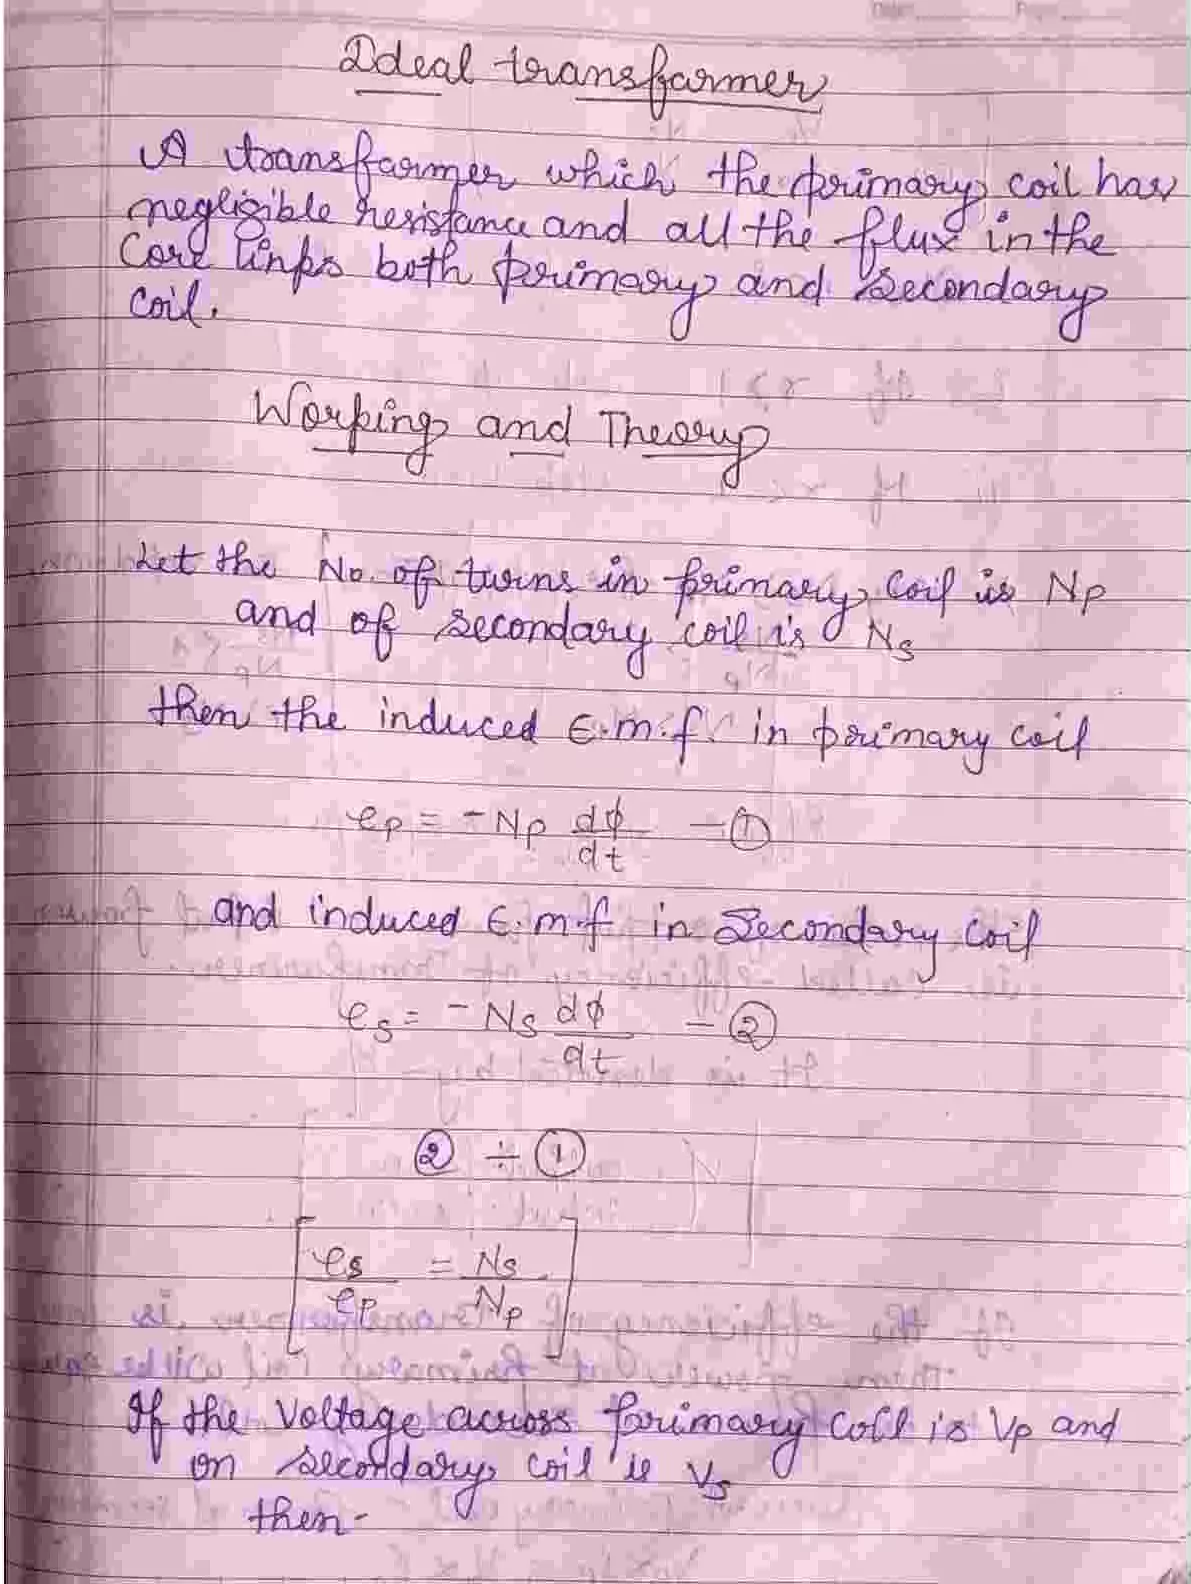 Ideal transfarmer
A transfarmer which the primary coil has
negligible resistance and all the flux in the
Core links both primary and Secondary
Coil.
Working and Theory
Let the No. of turns in primary Coil is Np
and of secondary coil is Ns
then the induced E.m.f. in primary coil
ep = -Np dφ/dt - ①
and induced E.m.f in Secondary Coil
es = -Ns dφ/dt - ②
② ÷ ①
[es/ep = Ns/Np]
If the Voltage across primary Coil is Vp and
on secondary coil is Vs
then-